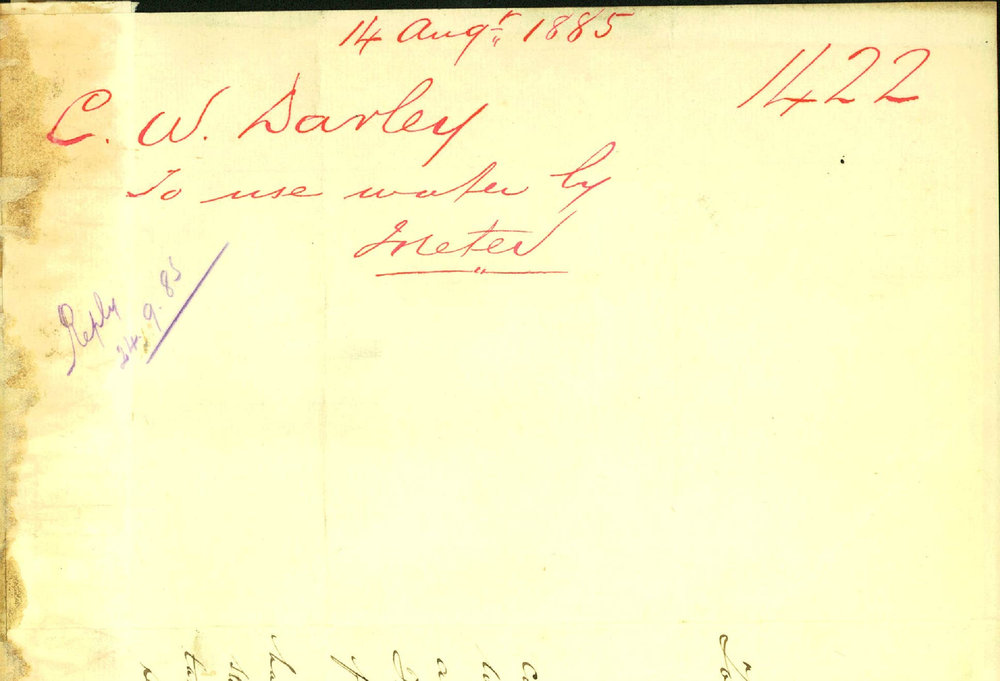 14 Augt. 1885
1422
C. W. Darley
To use water by
Meter
Reply
24.9.85
To